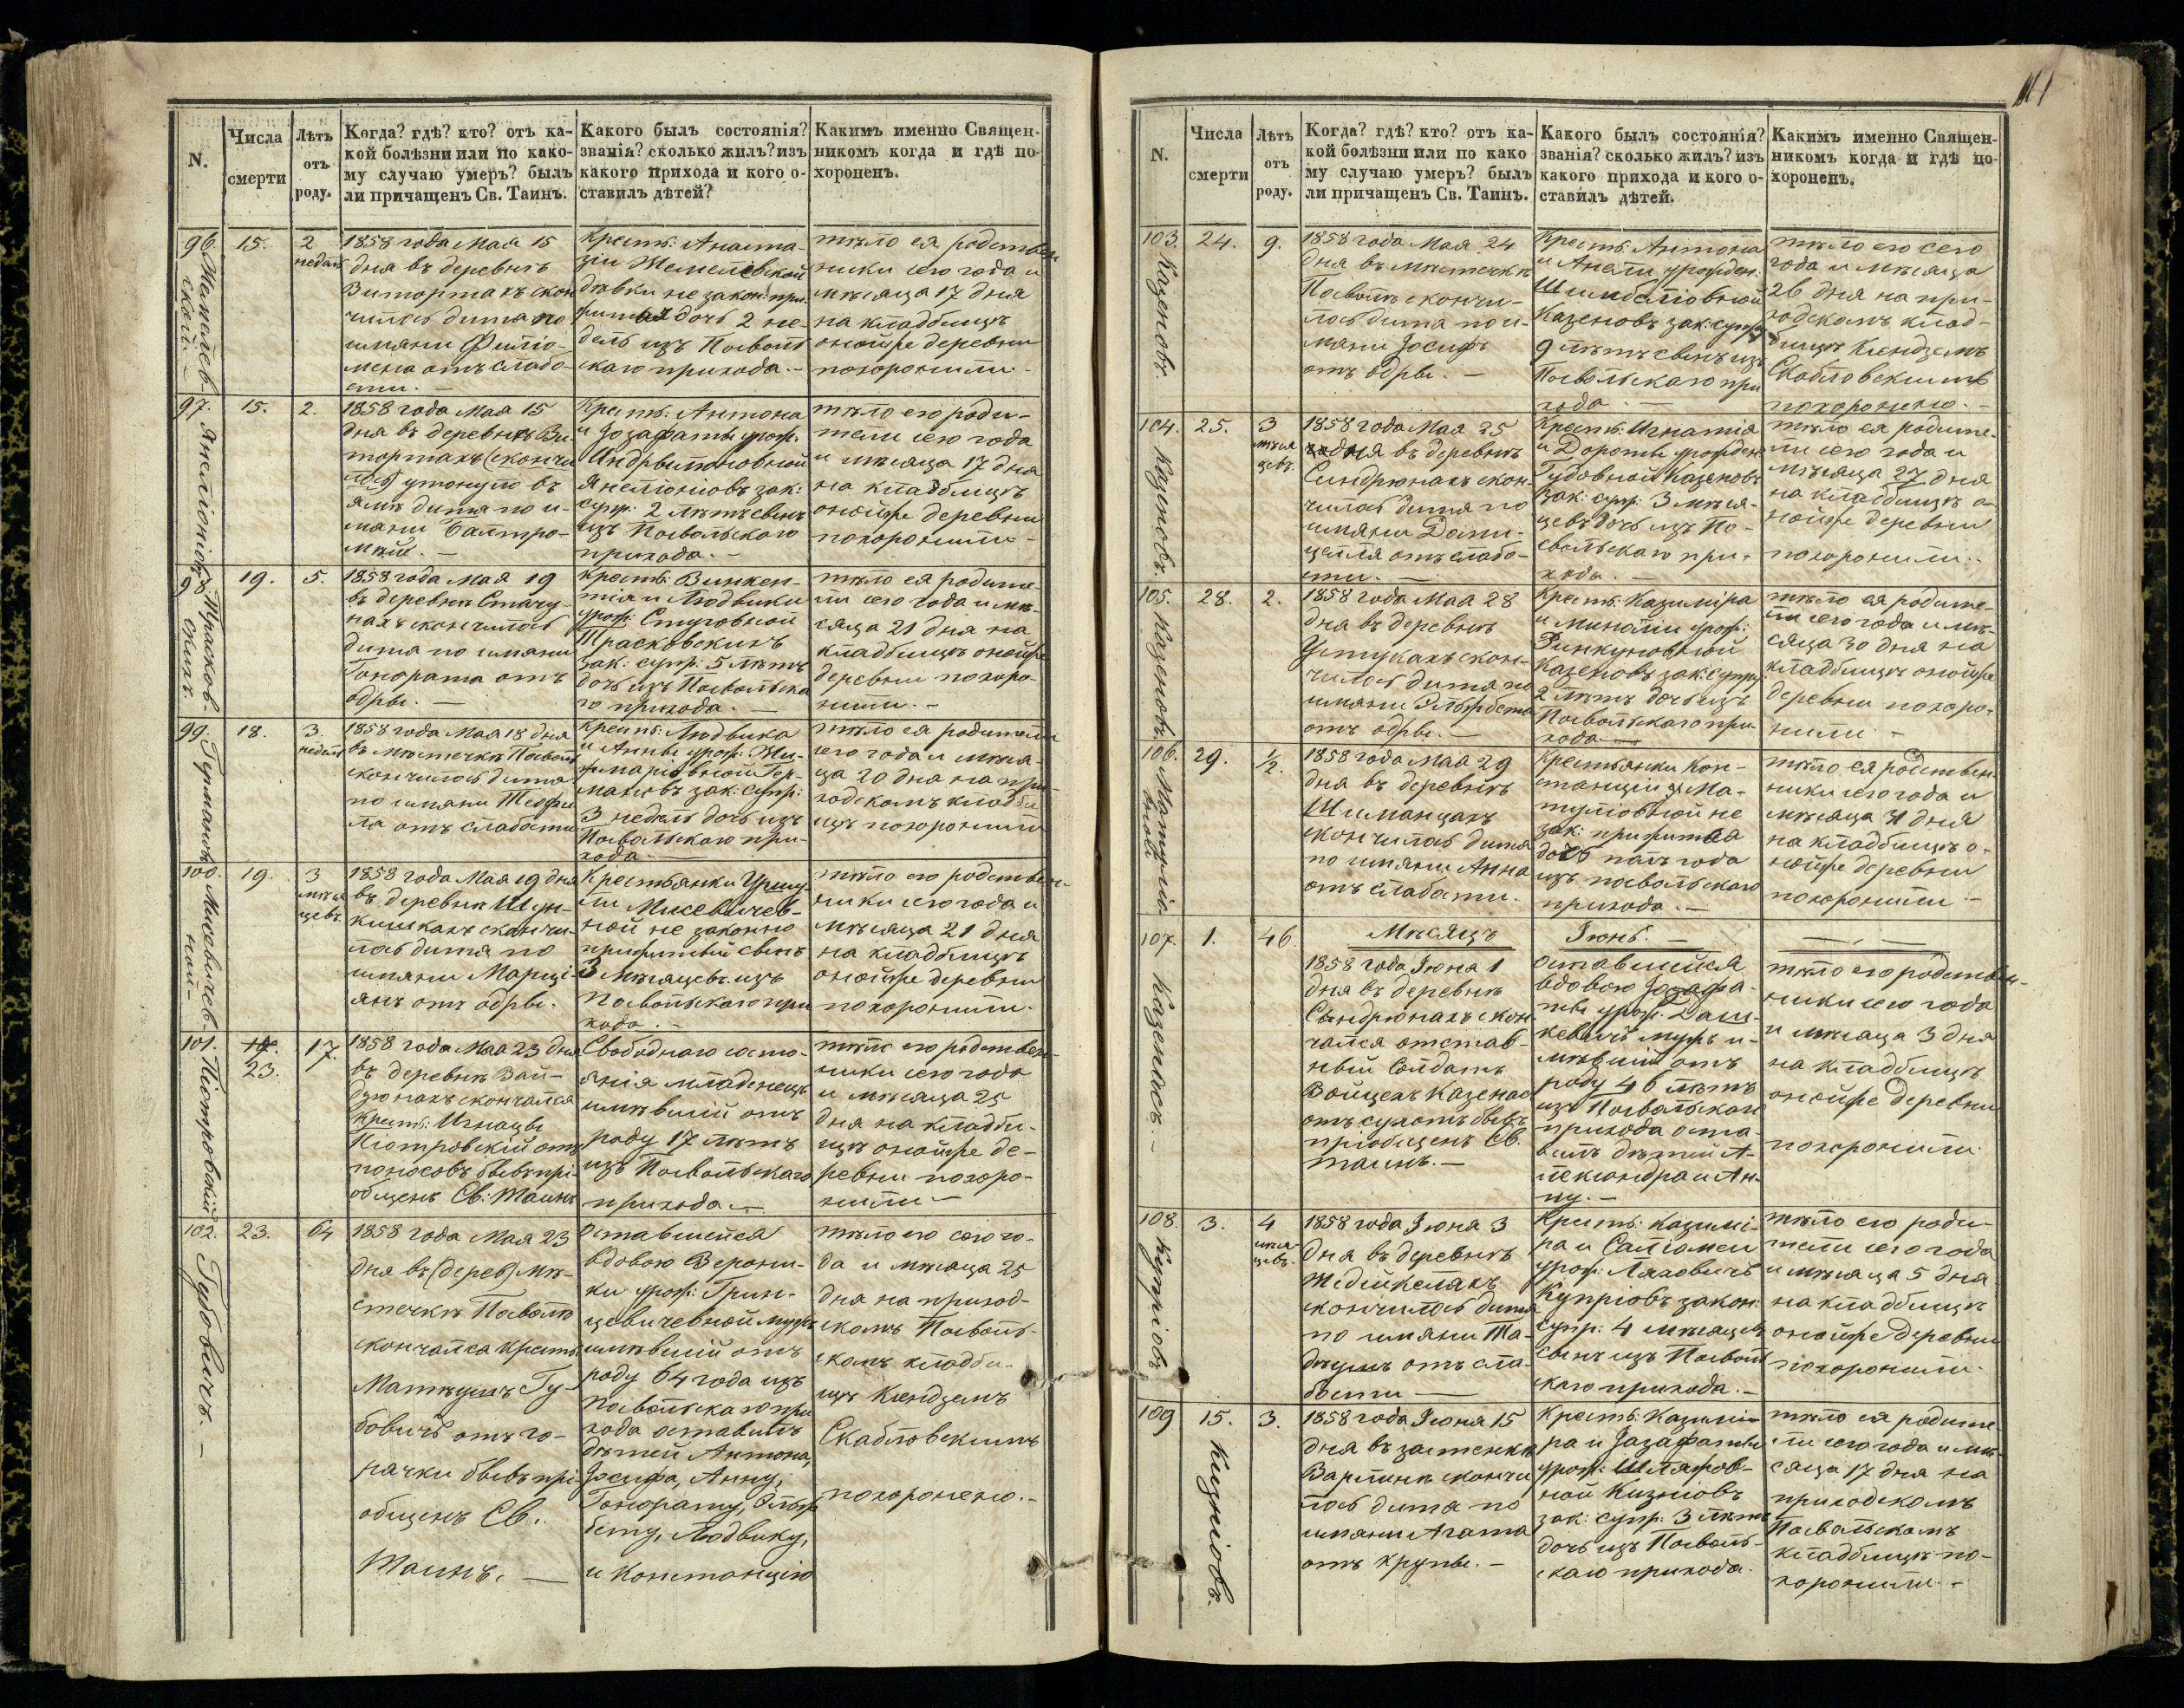 N.
Числа
смерти
Лѣтъ
отъ
роду.
Когда? гдѣ? кто? отъ ка-
кой болѣзни или по како-
му случаю умеръ? былъ
ли причащенъ Св. Таинъ.
Какого былъ состоянія?
званія? сколько жилъ? изъ
какого прихода и кого о-
ставилъ дѣтей?
Какимъ именно Священ-
никомъ когда и гдѣ по-
хороненъ.
96.
15.
2
недѣль
1858 года Мая 15
дня въ деревнѣ
скон
чилось дитя по
имяни Фило-
мена отъ слабо-
сти. —
Крестъ: Анаста-
зіи
дѣвки не закон: при-
житая дочь 2 не-
дѣль изъ Посволь
скаго прихода. —
тѣло ея родствен
ники сего года и
мѣсяца 17 дня
на кладбищѣ
онойже деревни
похоронили. —
97.
Анелюніовъ
15.
2.
1858 года Мая 15
дня въ деревнѣ Ви-
тортахъ (скончи
лось) утонуло въ
ямѣ дитя по и-
мяни Балтро-
мѣй. —
Крестъ: Антона
и Іозафаты урож:
Анелюніовъ зак:
супр: 2 лѣтъ сынъ
изъ Посвольскаго
прихода. —
тѣло его роди-
тели сего года
и мѣсяца 17 дня
на кладбищѣ
онойже деревни
похоронили —
19.
5.
1858 года Мая 19
въ деревнѣ Стачу-
нахъ скончилось
дитя по имяни
Гонората отъ
одры. —
Крестъ: Винкен-
тія и Людвики
урож:
Трасковскихъ
зак: супр: 5 лѣтъ
дочь изъ Посвольска
го прихода. —
тѣло ея родите-
ли сего года и мѣ-
сяца 21 дня на
кладбищѣ онойже
деревни похоро-
нили. —
99.
Германовъ
18.
3.
недѣль
1858 года Мая 18 дня
въ мѣстечкѣ Посволѣ
скончилось дитя
по имяни Теофи
ла отъ слабости
Крестъ: Людвика
и Анны урож:
Гер-
мановъ зак: супр:
3 недѣль дочь изъ
Посвольскаго при-
хода. —
тѣло ея родители
сего года и мѣся-
ца 20 дня на при-
ходскомъ кладби
щѣ похоронили
100.
Мисевичев-
ной —
19.
3
мѣся
цевъ.
1858 года Мая 19 дня
въ деревнѣ
скончи-
лось дитя по
имяни Марці-
янъ отъ одры.
Крестьянки Уршу-
ли Мисевичев-
ной не законно
прижитый сынъ
3 мѣсяцевъ изъ
Посвольскаго при
хода. —
тѣло его родствен-
ники сего года и
мѣсяца 21 дня
на кладбищѣ
онойже деревни
похоронили.
101.
Піотровскій
23.
17.
1858 года Мая 23 дня
въ деревнѣ Вай-
дзюнахъ скончался
Крестъ: Игнацы
Піотровскій отъ
поносовъ бывъ прі-
общенъ Св: Таинъ
Свободнаго состо-
янія младенецъ
имѣвшій отъ
роду 17 лѣтъ
изъ Посвольскаго
прихода. —
тѣло его родствен-
ники сего года
и мѣсяца 25
дня на кладби-
щѣ онойже де-
ревни похоро-
нили —
102.
Губовичъ. —
23.
64
1858 года Мая 23
дня въ (дерев) мѣ-
стечкѣ Посволѣ
скончался Крестъ:
Матеушъ Гу-
бовичъ отъ го-
рячки бывъ прі-
общенъ Св.
Таинъ. —
Оставшейся
вдовою Верони-
ки урож: Грин-
цевичевной мужъ
имѣвшій отъ
роду 64 года изъ
Посвольскаго при
хода оставилъ
дѣтей Антона,
Іосифа, Анну,
Гонорату, Эльж
бету, Людвику,
и Констанцію
тѣло его сего го-
да и мѣсяца 25
дня на приход-
скомъ Посволь-
скомъ кладби-
щѣ Ксендземъ
Скабловскимъ
похоронено. —
N.
Числа
смерти
Лѣтъ
отъ
роду.
Когда? гдѣ? кто? отъ ка-
кой болѣзни или по како
му случаю умеръ? былъ
ли причащенъ Св. Таинъ.
Какого былъ состоянія?
званія? сколько жилъ? изъ
какого прихода и кого о-
ставилъ дѣтей.
Какимъ именно Священ-
никомъ когда и гдѣ по-
хороненъ.
103.
Казеновъ.
24.
9.
1858 года Мая 24
дня въ мѣстечкѣ
Посволѣ скончи-
лось дитя по и-
мяни Іосифъ
отъ одры. —
Крестъ: Антона
и Анели урожден:
Казеновъ зак: супр:
9 лѣтъ сынъ изъ
Посвольскаго при
хода. —
тѣло его сего
года и мѣсяца
26 дня на при-
ходскомъ клад-
бищѣ Ксендземъ
Скабловскимъ
похоронено. —
104.
Казеновъ.
25.
3
мѣся
цевъ.
1858 года Мая 25
дня въ деревнѣ
Синдрюнахъ скон-
чилось дитя по
имяни Доми-
целля отъ слабо-
сти. —
Крестъ: Игнатія
и Дороты урожден:
Губовной Казеновъ
зак: супр: 3 мѣся-
цевъ дочь изъ По-
свольскаго при-
хода. —
тѣло ея родите-
ли сего года и
мѣсяца 27 дня
на кладбищѣ о-
нойже деревни
похоронили. —
105.
Казеновъ
28.
2.
1858 года Мая 28
дня въ деревнѣ
Устукахъ скон-
чилось дитя по
имяни Эльжбета
отъ одры. —
Крестъ: Казиміра
и Михалины урож:
Казеновъ зак: супру
2 лѣтъ дочь изъ
Посвольскаго при
хода —
тѣло ея родите-
ли сего года и мѣ-
сяца 30 дня на
кладбищѣ онойже
деревни похоро-
нили —
106.
29.
½.
1858 года Мая 29
дня въ деревнѣ
Шиманцахъ
скончилось дитя
по имяни Анна
отъ слабости.
Крестьянки Кон-
станціи Ма-
тулювной не
зак: прижитая
дочь полъ года
изъ посвольскаго
прихода. —
тѣло ея родствен
ники сего года и
мѣсяца 31 дня
на кладбищѣ о-
нойже деревни
похоронили —
Мѣсяцъ
Іюнь. —
107.
Казенасъ —
1.
46.
1858 года Іюня 1
дня въ деревнѣ
Синдрюнахъ скон-
чался отстав-
ный Солдатъ
Войцехъ Казенас
отъ сухотъ бывъ
пріобщенъ Св.
таинъ. —
Оставшейся
вдовою Іозафа-
ты урож: Даш-
кевичъ мужъ и-
мѣвшій отъ
роду 46 лѣтъ
изъ Посвольскаго
прихода оста-
вилъ дѣтей А-
лександра и Ан-
ну. —
тѣло его родствен-
ники сего года
и мѣсяца 3 дня
на кладбищѣ
онойже деревни
похоронили.
108.
Купріовъ
3.
4
мѣся-
цевъ.
1858 года Іюня 3
дня въ деревнѣ
скончилось дитя
по имяни Та-
деушъ отъ сла-
бости —
Крестъ: Казимі-
ра и Саломеи
урож: Ляховичъ
Купріовъ закон:
супр: 4 мѣсяцевъ
сынъ изъ Посволь
скаго прихода. —
тѣло его роди-
тели сего года
и мѣсяца 5 дня
на кладбищѣ
онойже деревни
похоронили.
109
Кизніовъ.
15.
3.
1858 года Іюня 15
дня въ застенкѣ
Варлинѣ скончи
лось дитя по
имяни Агата
отъ крупы. —
Крестъ: Казимі-
ра и Іазафаты
урож: Шляпов-
ной Кизніовъ
зак: супр: 3 лѣтъ
дочь изъ Посволь-
скаго прихода.
тѣло ея родите
ли сего года и мѣ-
сяца 17 дня на
приходскомъ
Посвольскомъ
кладбищѣ по-
хоронили. —